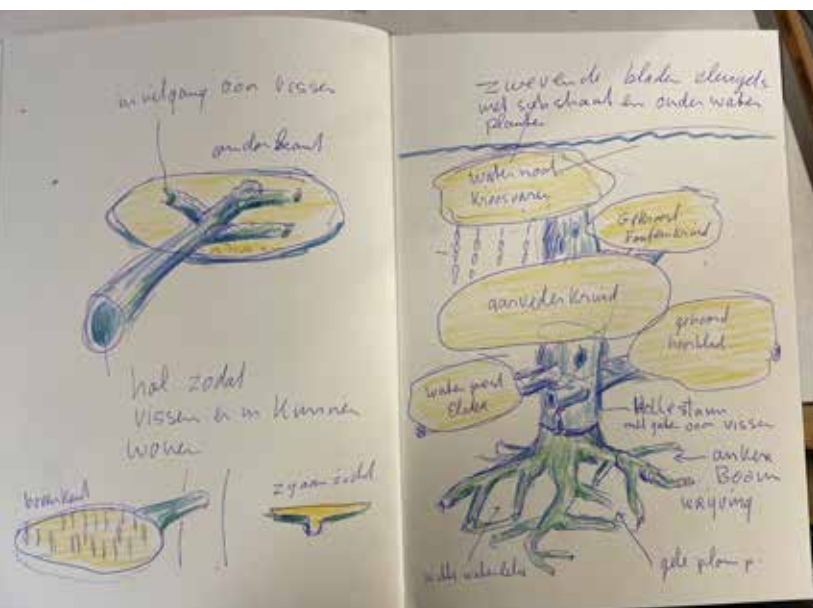 in uitgang voor vissen
onderkant
hol zodat
vissen er in kunnen
wonen
bovenkant
zijaanzicht
zwevende bladen vleugels
met substraat en onder water
planten
waternoot
kroosvaren
Gekroesd
Fonteinkruid
aarvederkruid
gehoornd
hoornblad
waterpest
Holle stam
met gaten voor vissen
anker
Boom
witte waterlelie
gele plomp